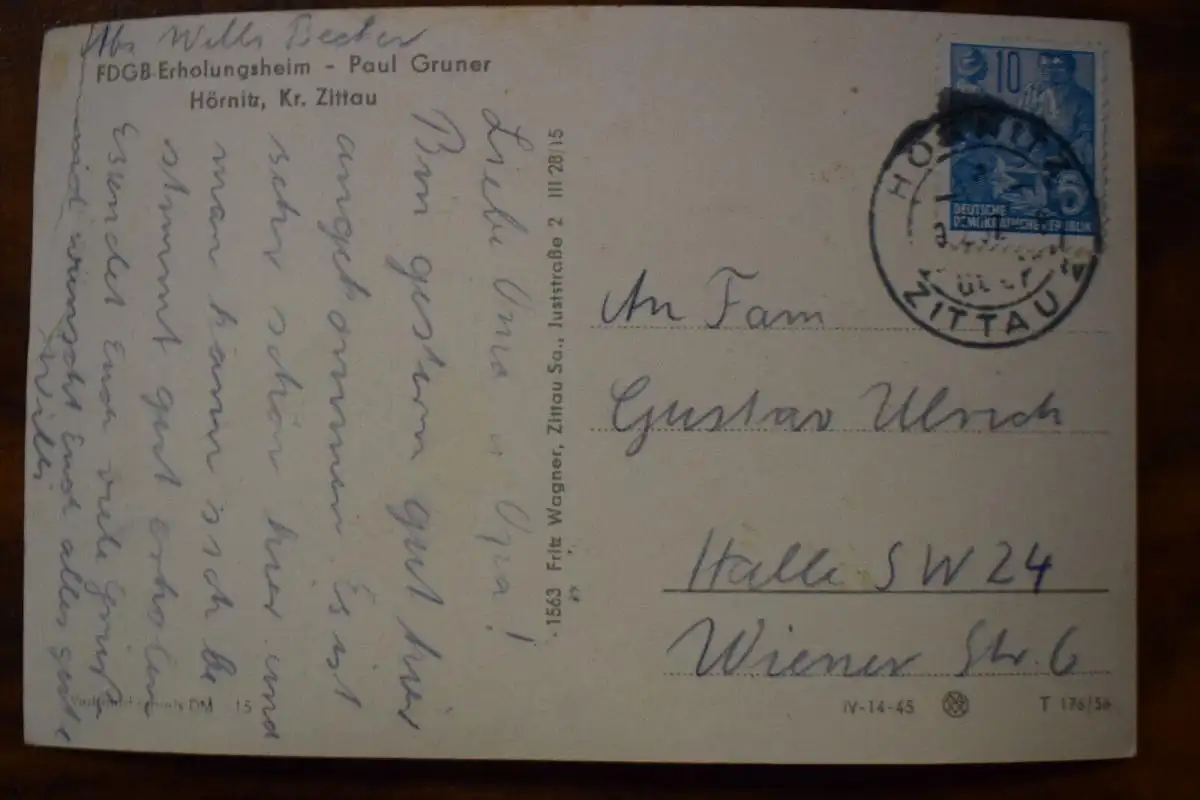 Abs Willi Becker
FDGB-Erholungsheim - Paul Gruner
Hörnitz, Kr. Zittau
Liebe Oma u Opa!
Bin gestern gut hier
angekommen. Es ist
sehr schön hier und
man kann sich be-
stimmt gut erholen
Es sendet Euch viele Grüße
und wünscht Euch alles gute
Willi
- 1563 Fritz Wagner, Zittau Sa., Juststraße 2 III 28/15
10
5
DEUTSCHE
DEMOKRATISCHE REPUBLIK
HÖRNITZ
über
ZITTAU
An Fam
Gustav Ulrich
Halle SW 24
Wiener Str. 6
DM 15
IV-14-45
T 176/56